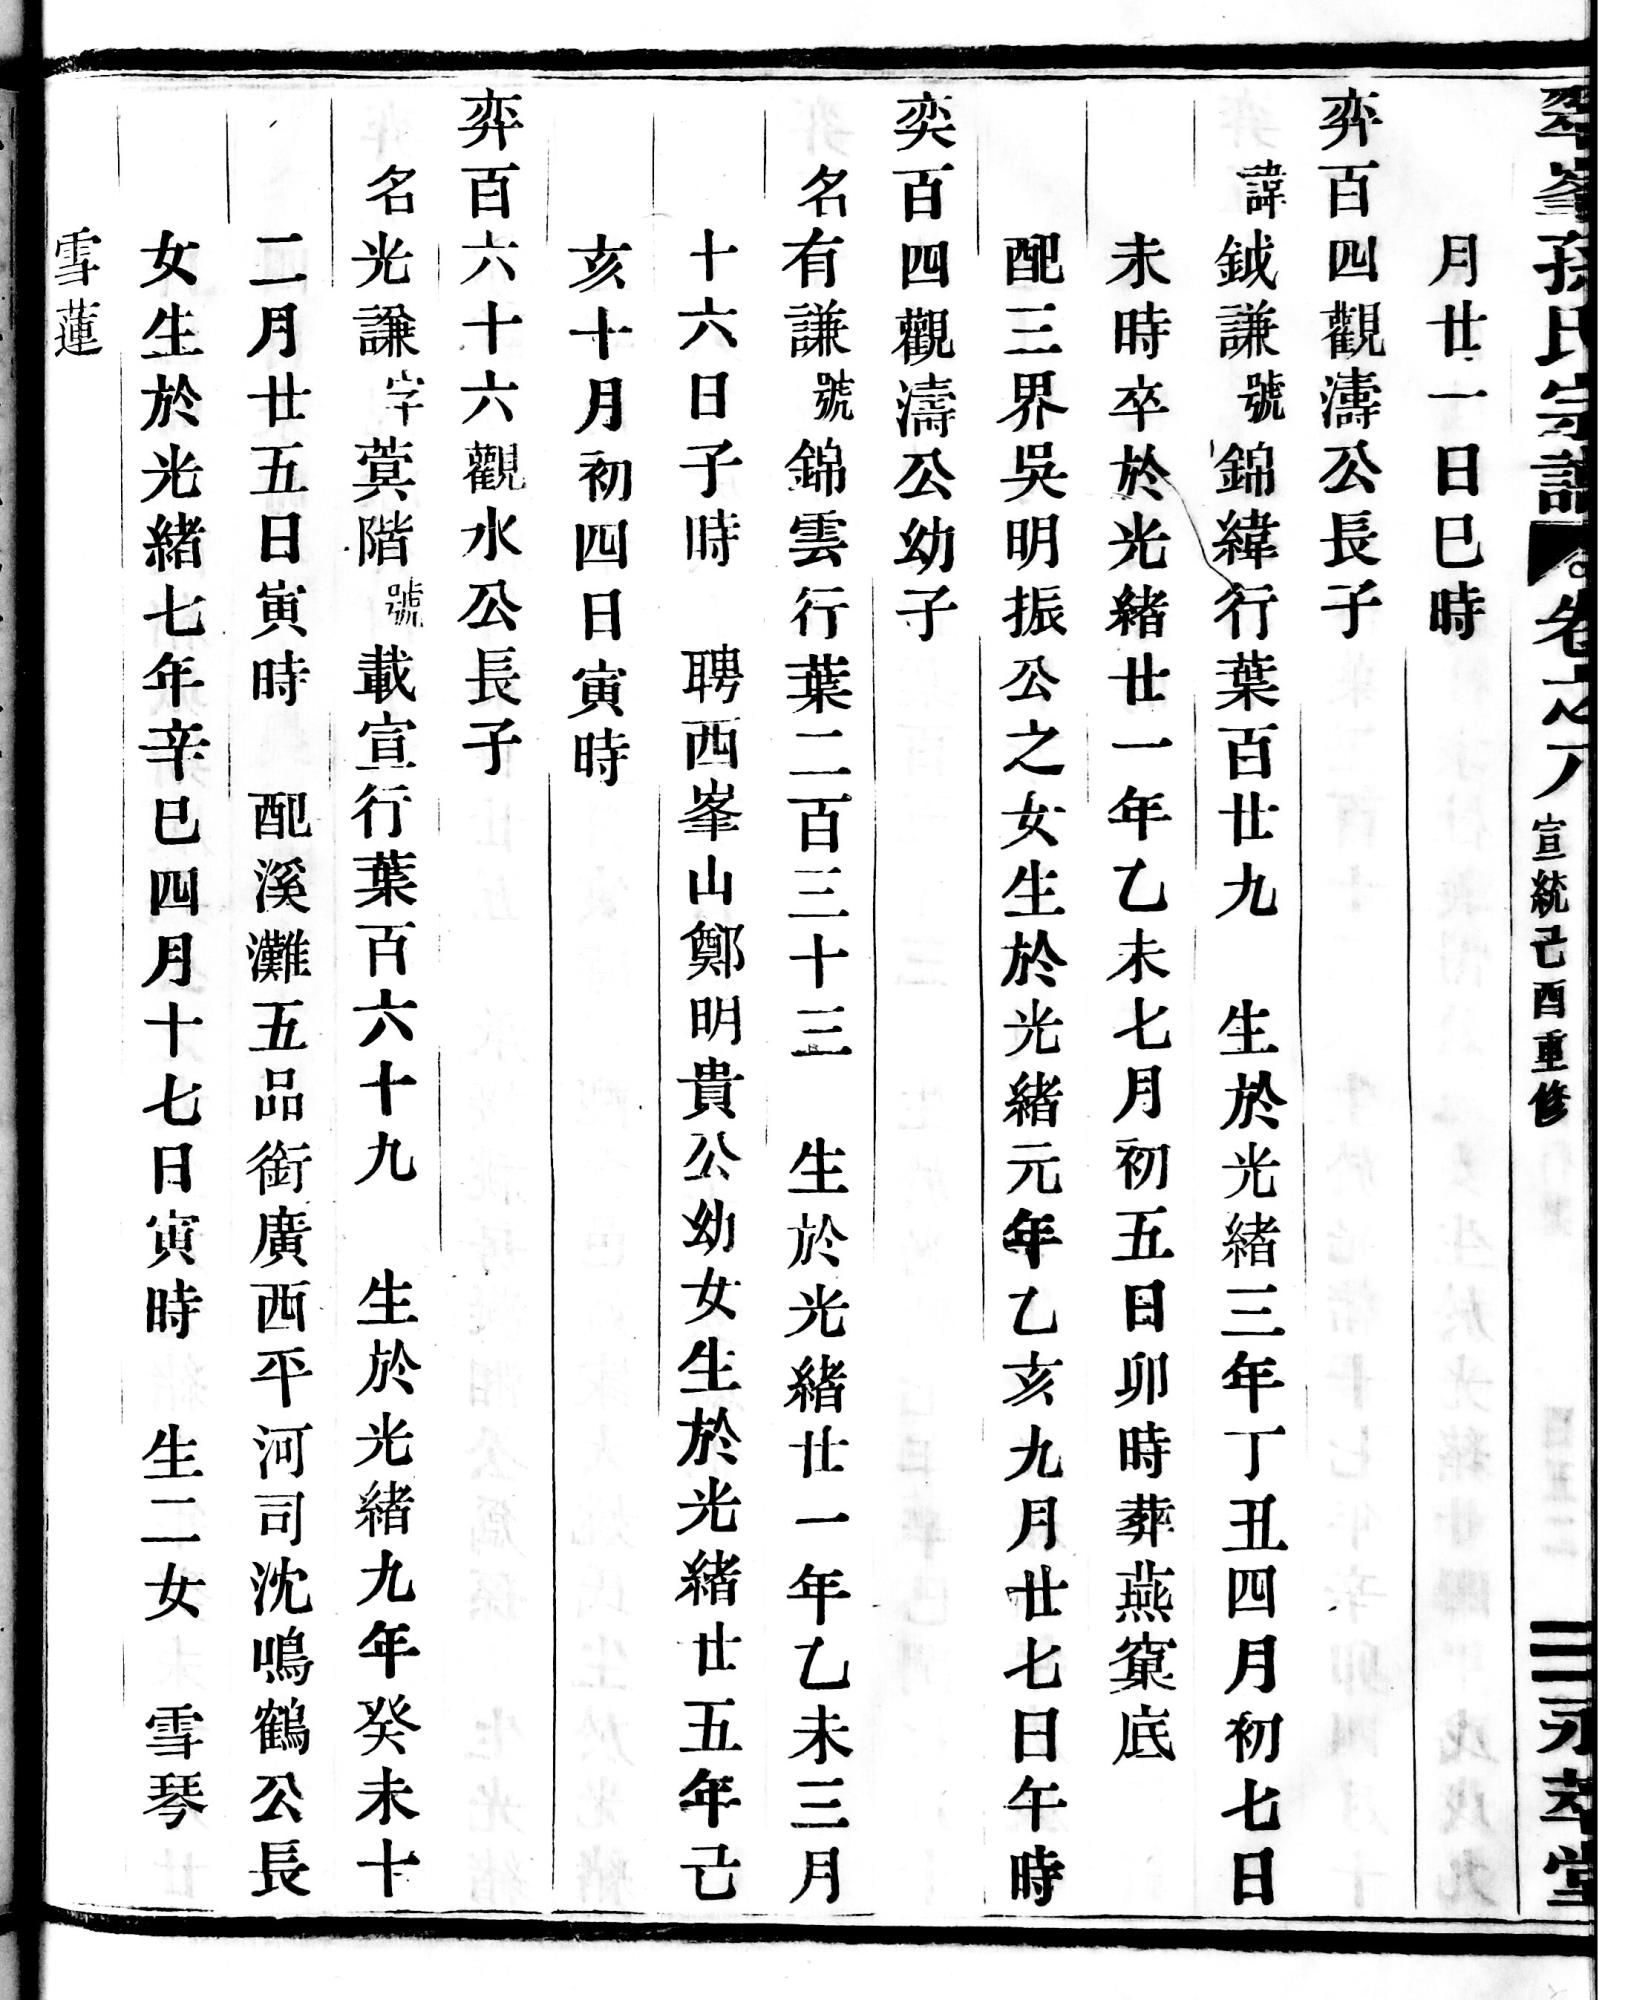 翠峯孫氏宗譜 卷之八 宣統己酉重修 三 永萃堂
月廿一日巳時
弈百四觀濤公長子
諱鉞謙號錦緯行葉百廿九 生於光緒三年丁丑四月初七日
未時卒於光緒廿一年乙未七月初五日卯時葬燕窠底
配三界吳明振公之女生於光緒元年乙亥九月廿七日午時
奕百四觀濤公幼子
名有謙號錦雲行葉二百三十三 生於光緒廿一年乙未三月
十六日子時 聘西峯山鄭明貴公幼女生於光緒廿五年己
亥十月初四日寅時
弈百六十六觀水公長子
名光謙字蓂階號載宣行葉百六十九 生於光緒九年癸未十
二月廿五日寅時 配溪灘五品銜廣西平河司沈鳴鶴公長
女生於光緒七年辛巳四月十七日寅時 生二女 雪琴
雪蓮